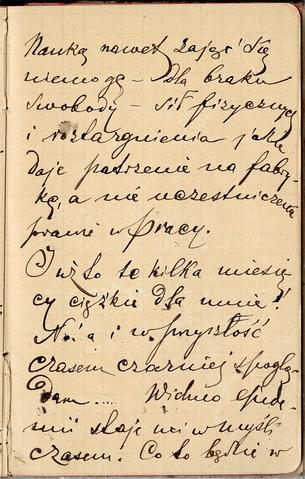 Nauką nawet zająć się
niemogę – dla braku
swobody – sił fizycznych
i roztargnienia jakie
daje patrzenie na fabry-
kę, a nie uczestniczenie
prawie w pracy.
I wżo te kilka miesię
cy ciężkie dla mnie!
No! a i w przyszłość
czasem czarniej spoglą
dam..... Widmo epide-
mii staje mi w myśli
czasem. Co to będzie w